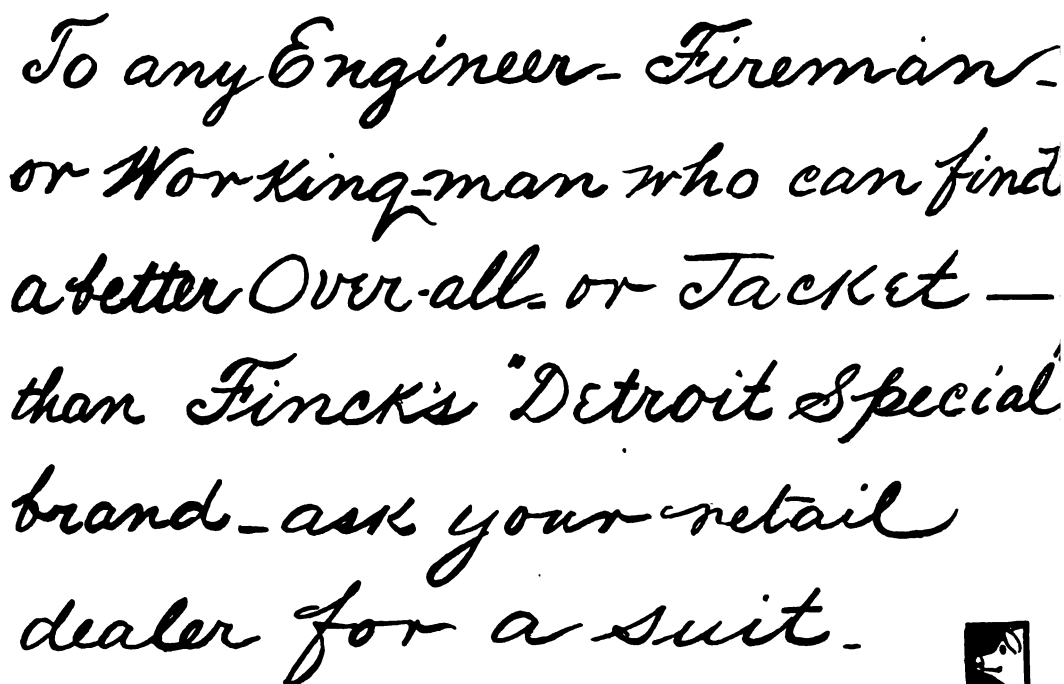 To any Engineer- Fireman-
or Working-man who can find
a better Over-all- or Jacket —
than Finck's "Detroit Special"
brand - ask your retail
dealer for a suit.